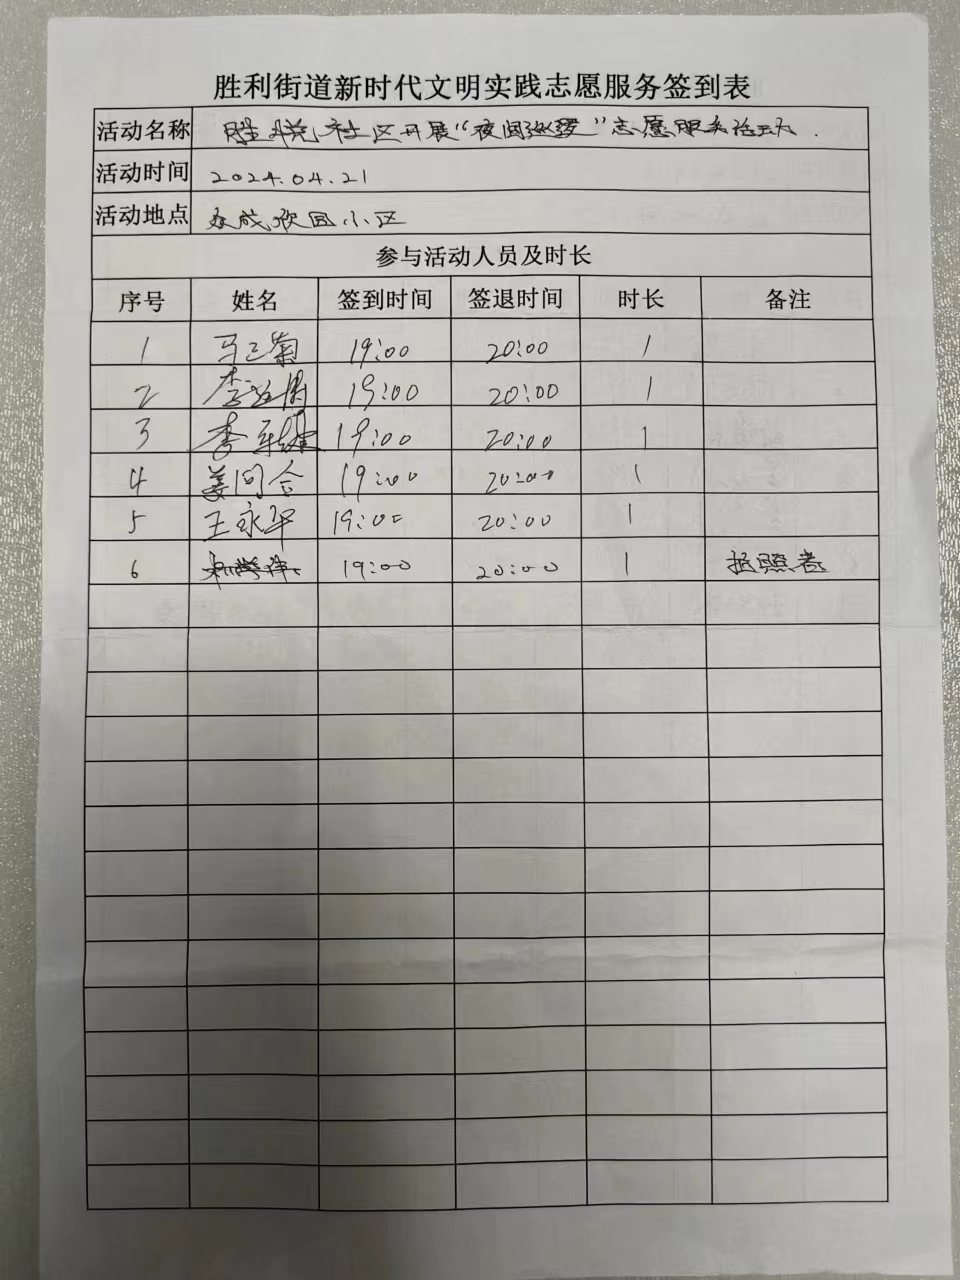 胜利街道新时代文明实践志愿服务签到表
活动名称 胜悦社区开展“夜间巡逻”志愿服务活动.
活动时间 2024.04.21
活动地点 众成欣园小区
参与活动人员及时长
序号 姓名 签到时间 签退时间 时长 备注
1 马三菊 19:00 20:00 1
2 李 19:00 20:00 1
3 李 19:00 20:00 1
4 姜同合 19:00 20:00 1
5 王永华 19:00 20:00 1
6 19:00 20:00 1 拍照者